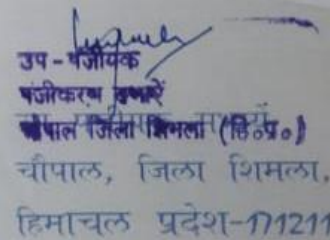 उप-पंजीयक
पंजीकरण
चौपाल जिला शिमला (हि०प्र०)
चौपाल, जिला शिमला,
हिमाचल प्रदेश-171211